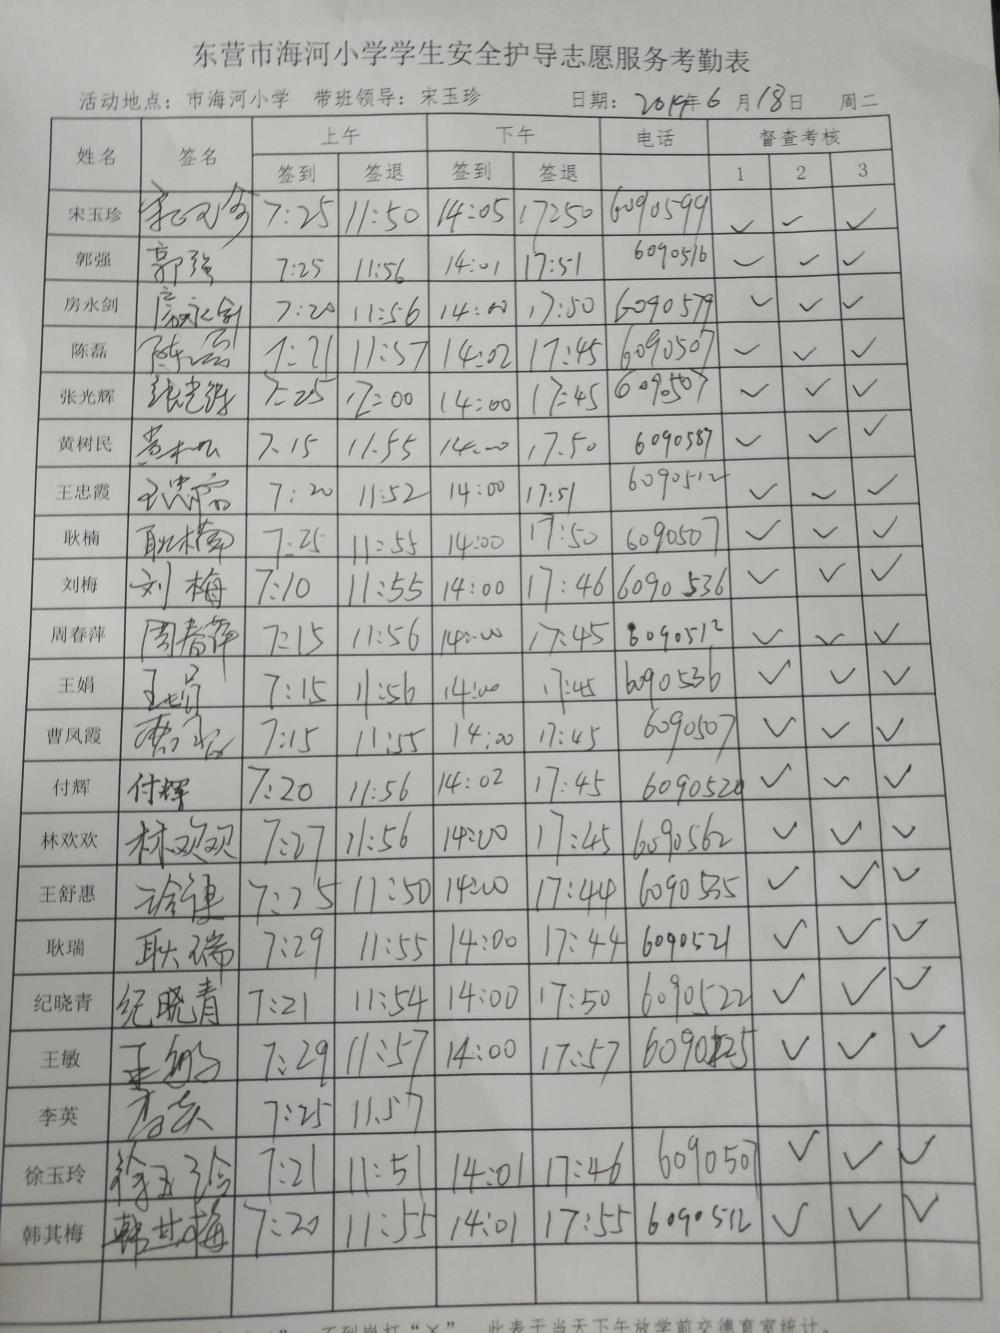 东营市海河小学学生安全护导志愿服务考勤表
活动地点：市海河小学 带班领导：宋玉珍 日期：2019年6月18日 周二
姓名 签名 上午 下午 电话 督查考核
签到 签退 签到 签退 1 2 3
宋玉珍 宋玉珍 7:25 11:50 14:05 17:50 6090599 ✓ ✓ ✓
郭强 郭强 7:25 11:56 14:01 17:51 6090516 ✓ ✓ ✓
房永剑 房永剑 7:20 11:56 14:00 17:50 6090579 ✓ ✓ ✓
陈磊 陈磊 7:21 11:57 14:02 17:45 6090507 ✓ ✓ ✓
张光辉 张光辉 7:25 12:00 14:00 17:45 6090507 ✓ ✓ ✓
黄树民 7:15 11:55 14:00 17:50 6090587 ✓ ✓ ✓
王忠霞 王忠霞 7:20 11:52 14:00 17:51 6090512 ✓ ✓ ✓
耿楠 耿楠 7:25 11:55 14:00 17:50 6090507 ✓ ✓ ✓
刘梅 刘梅 7:10 11:55 14:00 17:46 6090536 ✓ ✓ ✓
周春萍 周春萍 7:15 11:56 14:00 17:45 6090512 ✓ ✓ ✓
王娟 王娟 7:15 11:56 14:00 17:45 6090536 ✓ ✓ ✓
曹凤霞 7:15 11:55 14:00 17:45 6090507 ✓ ✓ ✓
付辉 付辉 7:20 11:56 14:02 17:45 6090520 ✓ ✓ ✓
林欢欢 林欢欢 7:27 11:56 14:00 17:45 6090562 ✓ ✓ ✓
王舒惠 7:25 11:50 14:00 17:44 6090535 ✓ ✓ ✓
耿瑞 耿瑞 7:29 11:55 14:00 17:44 6090521 ✓ ✓ ✓
纪晓青 纪晓青 7:21 11:54 14:00 17:50 6090522 ✓ ✓ ✓
王敏 王敏 7:29 11:57 14:00 17:57 ✓ ✓ ✓
李英 李英 7:25 11:57
徐玉玲 徐玉玲 7:21 11:51 14:01 17:46 609050 ✓ ✓ ✓
韩其梅 韩其梅 7:20 11:55 14:01 17:55 6090512 ✓ ✓ ✓
不到岗打“×”。 此表于当天下午放学前交德育室统计。